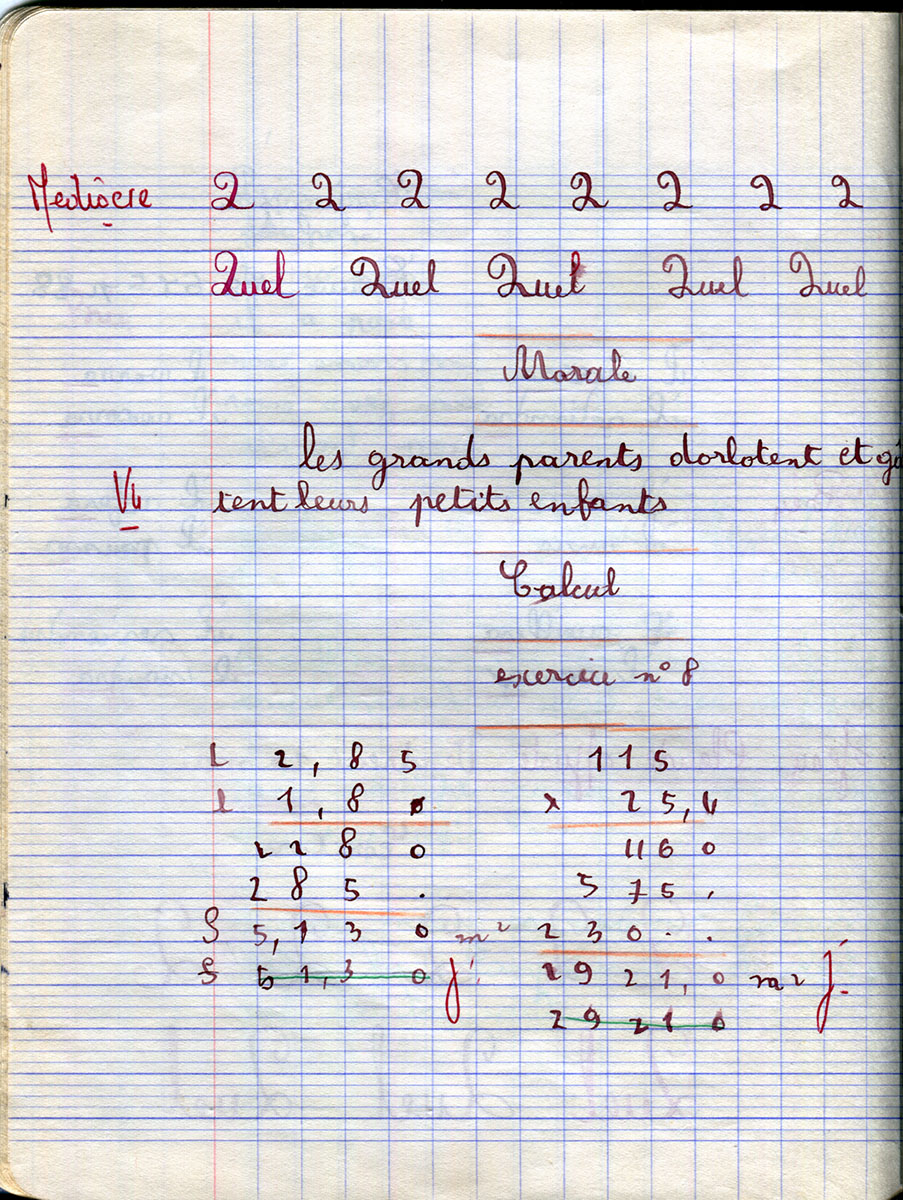 Mediocre Q Q Q Q Q Q Q Q
Quel Quel Quel Quel Quel
Morale
les grands parents dorlotent et gâ
Vu tent leurs petits enfants
Calcul
exercice n° 8
L 2,85 115
l 1,80 x 25,4
2280 460
285. 575.
S 5,130 m² 230..
S 51,30 j. 2921,0 m2 j.
29210